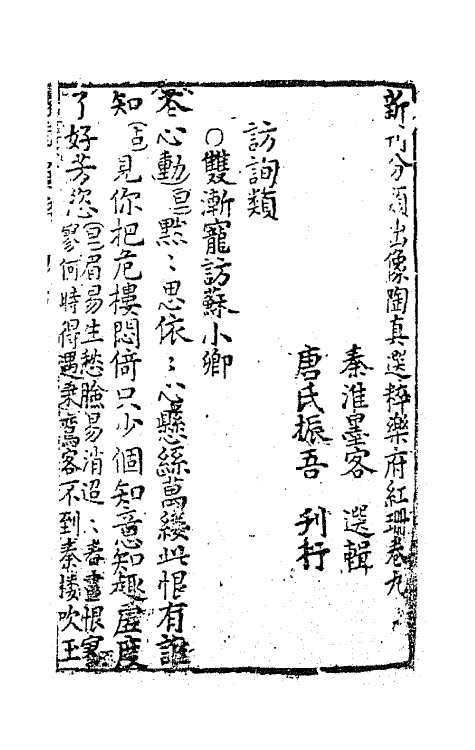 新刊分類出像陶真選粹樂府紅珊卷九
秦淮墨客 選輯
唐氏振吾 刊行
訪詢類
○雙漸寵訪蘇小卿
春心動[旦]默〻思依〻心懸絲萬縷此恨有誰
知[占]見你把危樓悶倚只少個知意知趣虛度
了好芳恣[旦]眉易生愁臉易消迢〻春盡恨
寥何時得遇乘鸞客不到秦樓吹玉